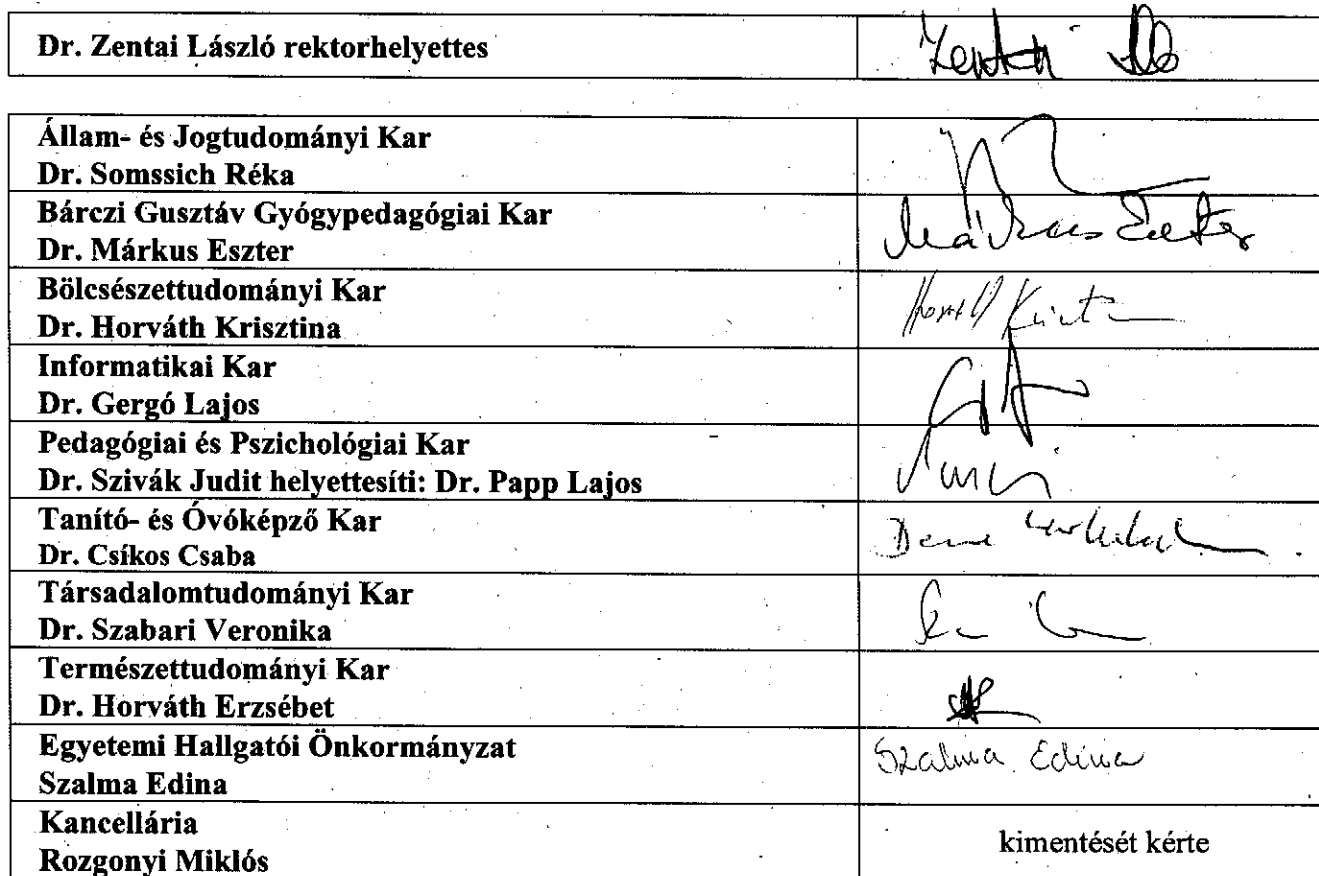 Dr. Zentai László rektorhelyettes
Zentai
Állam- és Jogtudományi Kar
Dr. Somssich Réka
Bárczi Gusztáv Gyógypedagógiai Kar
Dr. Márkus Eszter
Márkus Eszter
Bölcsészettudományi Kar
Dr. Horváth Krisztina
Informatikai Kar
Dr. Gergó Lajos
Pedagógiai és Pszichológiai Kar
Dr. Szivák Judit helyettesíti: Dr. Papp Lajos
Tanító- és Óvóképző Kar
Dr. Csíkos Csaba
Társadalomtudományi Kar
Dr. Szabari Veronika
Természettudományi Kar
Dr. Horváth Erzsébet
Egyetemi Hallgatói Önkormányzat
Szalma Edina
Szalma Edina
Kancellária
Rozgonyi Miklós
kimentését kérte